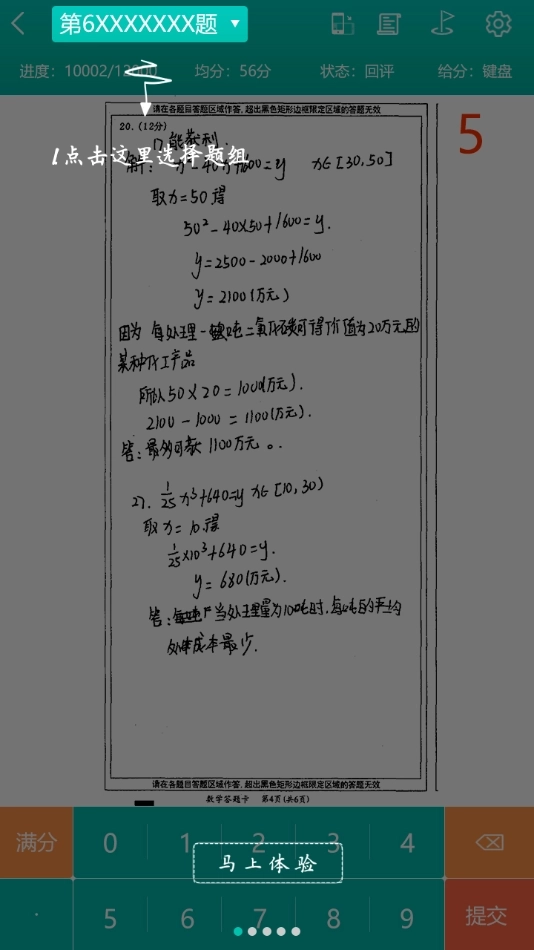 第6XXXXXXX题 ▼
进度：10002/12000 均分：56分 状态：回评 给分：键盘
请在各题目答题区域作答，超出黑色矩形边框限定区域的答题无效
5
20.(12分)
1)能获利.
1点击这里选择题组
解： x²-40x+1600=y x∈[30,50]
取x=50得
50²-40×50+1600=y.
y=2500-2000+1600
y=2100(万元)
因为 每处理一吨二氧化碳可得价值为20万元的
某种化工产品
所以50×20=1000(万元).
2100-1000=1100(万元).
答：最多可获1100万元。
2). 1/25 x³+640=y x∈[10,30)
取x=10得
1/25×10³+640=y.
y=680(万元).
答：当处理量为10吨时,每吨的平均
处理成本最少.
请在各题目答题区域作答，超出黑色矩形边框限定区域的答题无效
数学答题卡 第4页(共6页)
满分 0 1 2 3 4
马上体验
. 5 6 7 8 9 提交